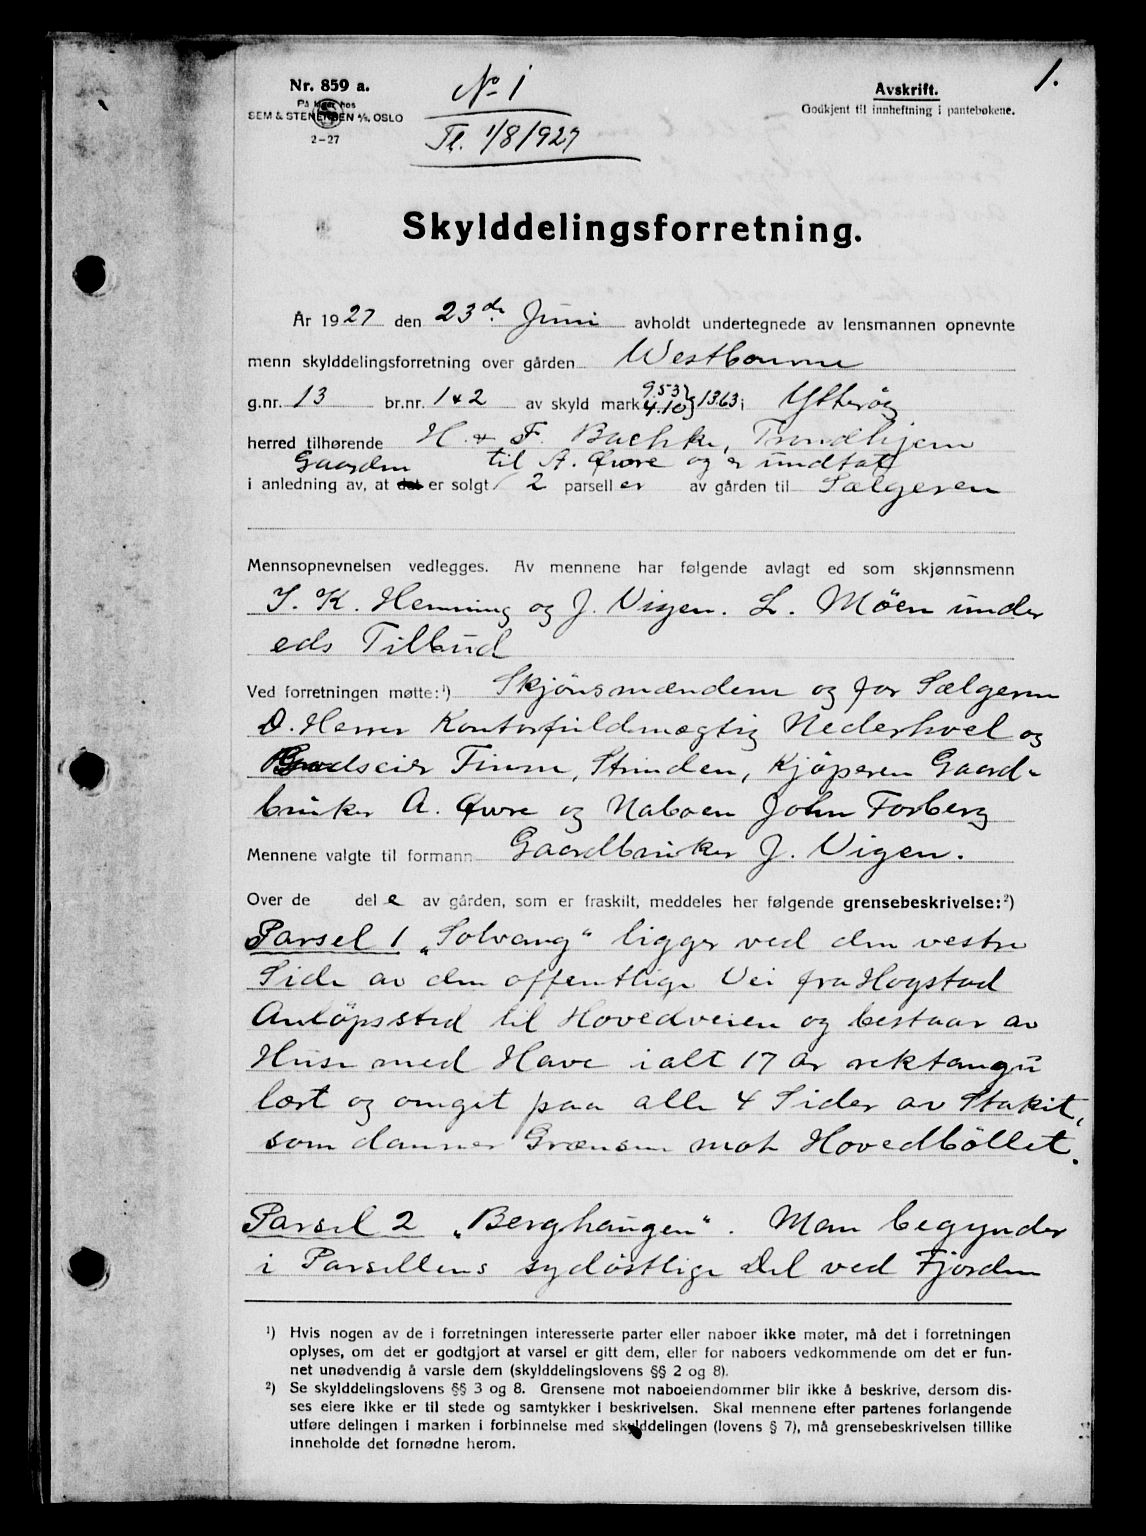 1.
Nr. 859 a.
På lager hos
SEM & STENERSEN A/S, OSLO
2-27
No 1
Tl. 1/8/1927
Avskrift.
Godkjent til innheftning i pantebøkene.
Skylddelingsforretning.
År 1927 den 23de Juni avholdt undertegnede av lensmannen opnevnte
menn skylddelingsforretning over gården Westbourne
g.nr. 13 br.nr. 1 & 2 av skyld mark 9.53 4.10 } 13.63 i Ytterøy
herred tilhørende H. & F. Bachke, Trondhjem
Gaarden til A. Øvre og er undtat
i anledning av, at det er solgt 2 parseller av gården til Sælgeren
Mennsopnevnelsen vedlegges. Av mennene har følgende avlagt ed som skjønnsmenn
I. K. Henning og J. Vigen. L. Möen under
eds Tilbud
Ved forretningen møtte:¹) Skjönsmændene og for Sælgerne
D. Herrer Kontorfuldmægtig Nederhoel og
Godseier Finne, Strinden, Kjöperen Gaard-
bruker A. Øvre og Naboen John Forberg
Mennene valgte til formann Gaardbruker J. Vigen.
Over de dele av gården, som er fraskilt, meddeles her følgende grensebeskrivelse:²)
Parsel 1 „Solvang" ligger ved den vestre
Side av den offentlige Vei fra Hogstad
Anlöpssted til Hovedveien og bestaar av
Huse med Have ialt 17 ar rektangu
lært og omgit paa alle 4 Sider av Stakit,
som danner Grænsen mot Hovedböllet.
Parsel 2 „Berghaugen". Man begynder
i Parsellens sydöstlige Del ved Fjorden
¹) Hvis nogen av de i forretningen interesserte parter eller naboer ikke møter, må det i forretningen
oplyses, om det er godtgjort at varsel er gitt dem, eller for naboers vedkommende om det er fun-
net unødvendig å varsle dem (skylddelingslovens §§ 2 og 8).
²) Se skylddelingslovens §§ 3 og 8. Grensene mot naboeiendommer blir ikke å beskrive, dersom dis-
ses eiere ikke er til stede og samtykker i beskrivelsen. Skal mennene efter partenes forlangende
utføre delingen i marken i forbinnelse med skylddelingen (lovens § 7), må grensebeskrivelsen tillike
inneholde det fornødne herom.